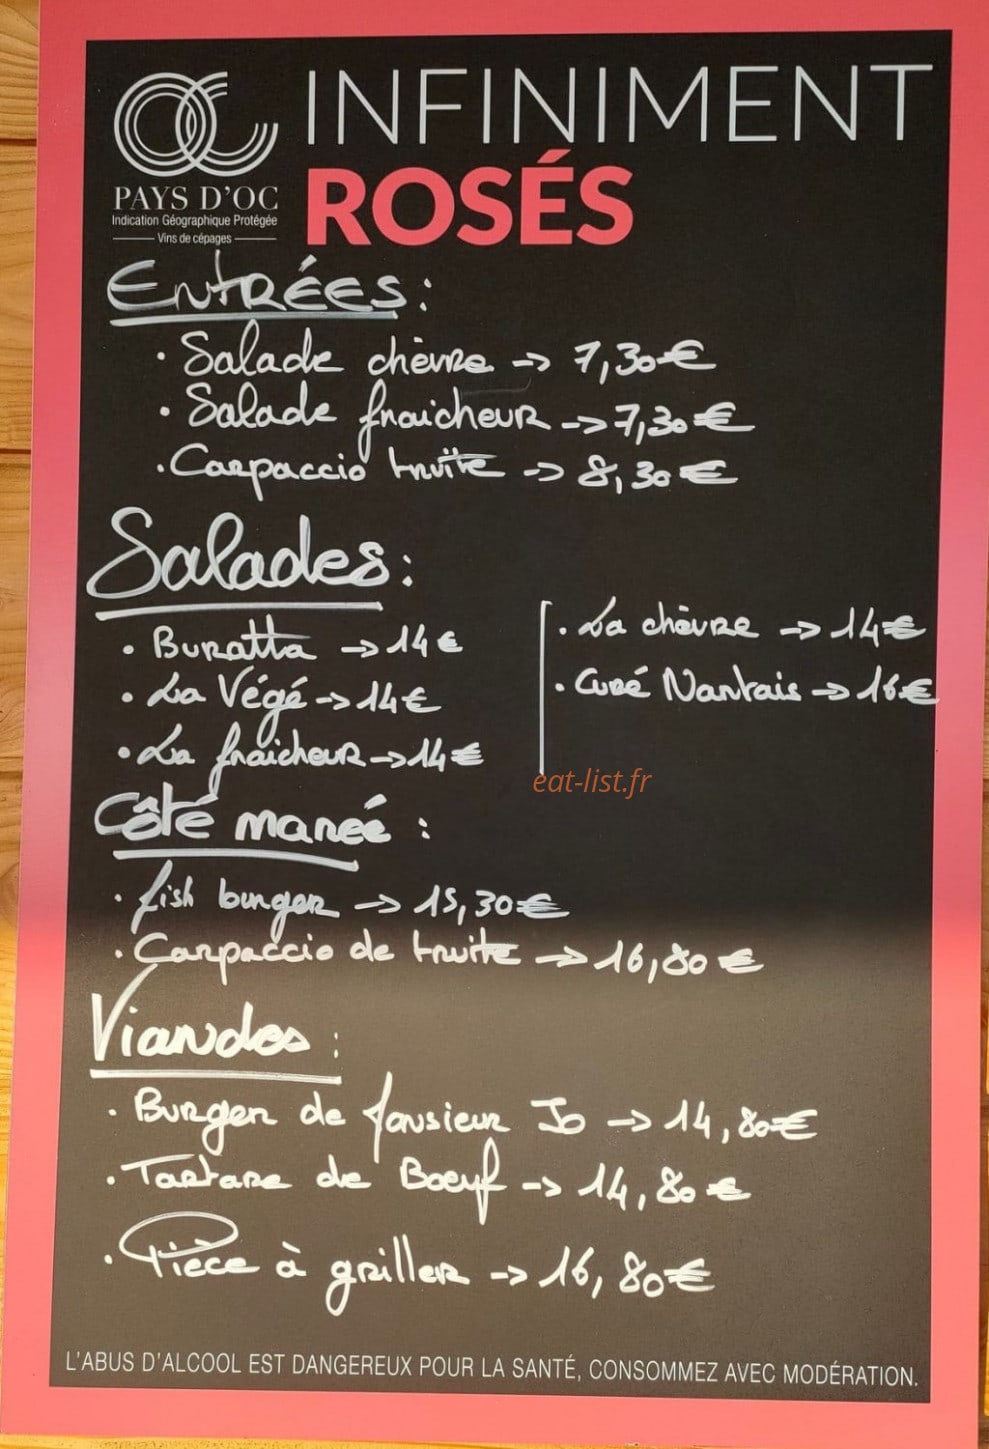 INFINIMENT
ROSÉS
PAYS D'OC
Indication Géographique Protégée
Vins de cépages
Entrées :
· Salade chèvre -> 7,30€
· Salade fraicheur -> 7,30€
· Carpaccio truite -> 8,30€
Salades :
· Buratta -> 14€
· La Végé -> 14€
· La fraicheur -> 14€
· La chèvre -> 14€
· Curé Nantais -> 16€
eat-list.fr
Côté marée :
· fish burger -> 15,30€
· Carpaccio de truite -> 16,80€
Viandes :
· Burger de Monsieur Jo -> 14,80€
· Tartare de Boeuf -> 14,80€
· Pièce à griller -> 16,80€
L'ABUS D'ALCOOL EST DANGEREUX POUR LA SANTÉ, CONSOMMEZ AVEC MODÉRATION.